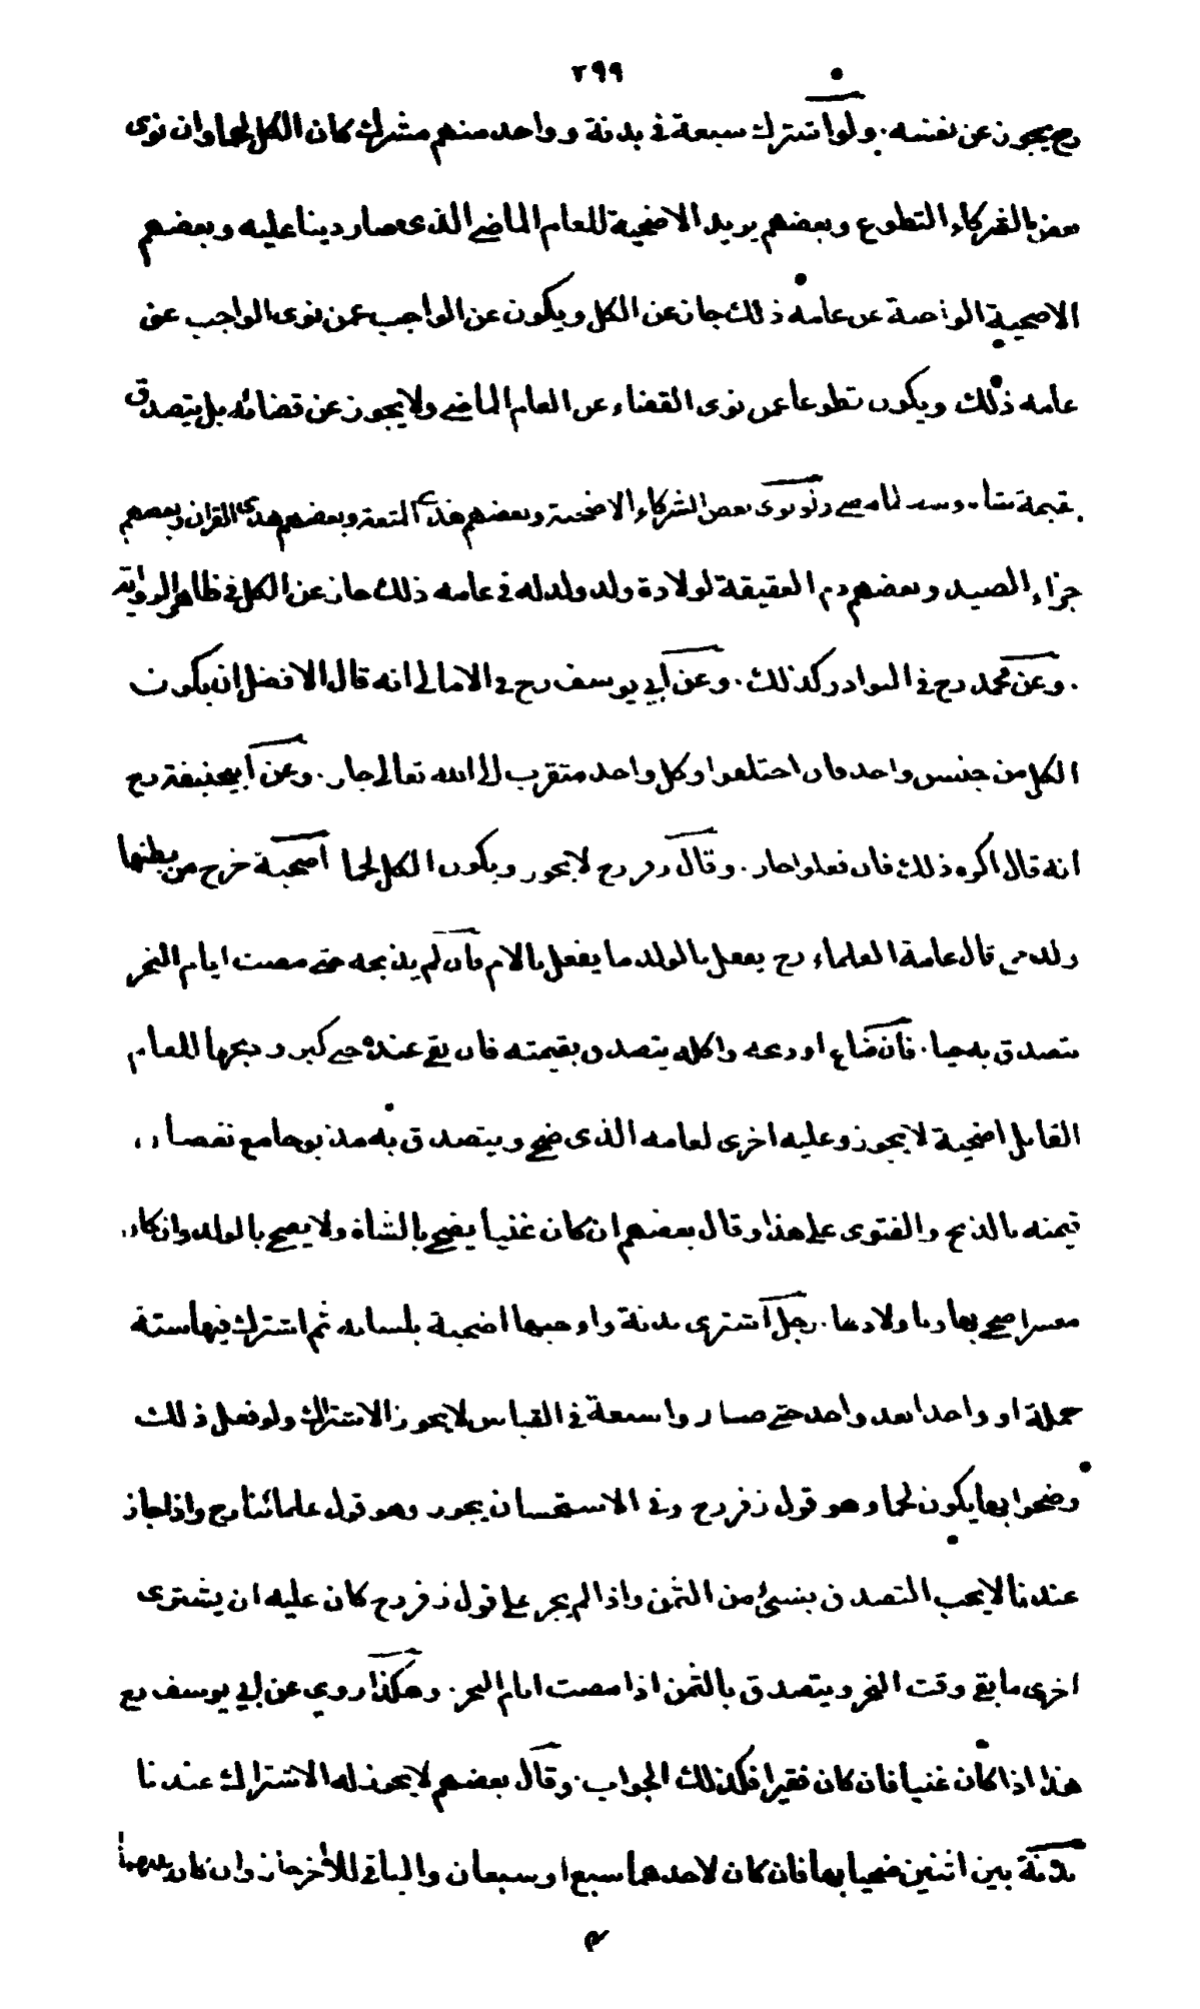 ٢٩٩
رح يجوز عن نفسه . ولو اشترك سبعة في بدنة وواحد منهم مشرك كان الكل لحما وان نوى
بعض الشركاء التطوع وبعضهم يريد الاضحية للعام الماضي الذى صار دينا عليه وبعضهم
الاضحية الواجبة عن عامه ذلك جاز عن الكل ويكون عن الواجب عمن نوى الواجب عن
عامه ذلك ويكون تطوعا عمن نوى القضاء عن العام الماضي ولا يجوز عن قضائه بل يتصدق
بقيمة شاة وسط لما مضى ولو نوى بعض الشركاء الاضحية وبعضهم هدى المتعة وبعضهم هدى القران وبعضهم
جزاء الصيد وبعضهم دم العقيقة لولادة ولد ولد له في عامه ذلك جاز عن الكل في ظاهر الرواية
. وعن محمد رح في النوادر كذلك . وعن ابي يوسف رح في الامالي انه قال الافضل ان يكون
الكل من جنس واحد فان اختلفوا وكل واحد متقرب الى الله تعالى جاز . وعن ابيحنيفة رح
انه قال اكره ذلك فان فعلوا جاز . وقال زفر رح لا يجوز ويكون الكل لحما اضحية خرج من بطنها
ولد حي قال عامة العلماء رح يفعل بالولد ما يفعل بالام فان لم يذبحه حتى مضت ايام النحر
يتصدق به حيا . فان ضاع او ذبحه واكله يتصدق بقيمته فان بقي عنده حتى كبر وذبحها للعام
القابل اضحية لا يجوز وعليه اخرى لعامه الذى ضحى ويتصدق به مذبوحا مع نقصان
قيمته بالذبح والفتوى على هذا وقال بعضهم ان كان غنيا يضحي بالشاة ولا يضحي بالولد وان كان
معسرا ضحى بها وباولادها . رجل اشترى بدنة واوجبها اضحية بلسانه ثم اشترك فيها ستة
جملة او واحدا بعد واحد حتى صاروا سبعة في القياس لا يجوز الاشتراك ولو فعل ذلك
وضحوا بها يكون لحما وهو قول زفر رح وفي الاستحسان يجوز وهو قول علمائنا رح واذا جاز
عندنا لا يجب التصدق بشئ من الثمن واذا لم يجز على قول زفر رح كان عليه ان يشترى
اخرى ما بقي وقت النحر ويتصدق بالثمن اذا مضت ايام النحر . وهكذا روي عن ابي يوسف رح
هذا اذا كان غنيا فان كان فقيرا فكذلك الجواب . وقال بعضهم لا يجوز له الاشتراك عندنا
بدنة بين اثنين ضحيا بها فان كان لاحدهما سبع او سبعان والباقي للآخر جاز وان كان بينهما